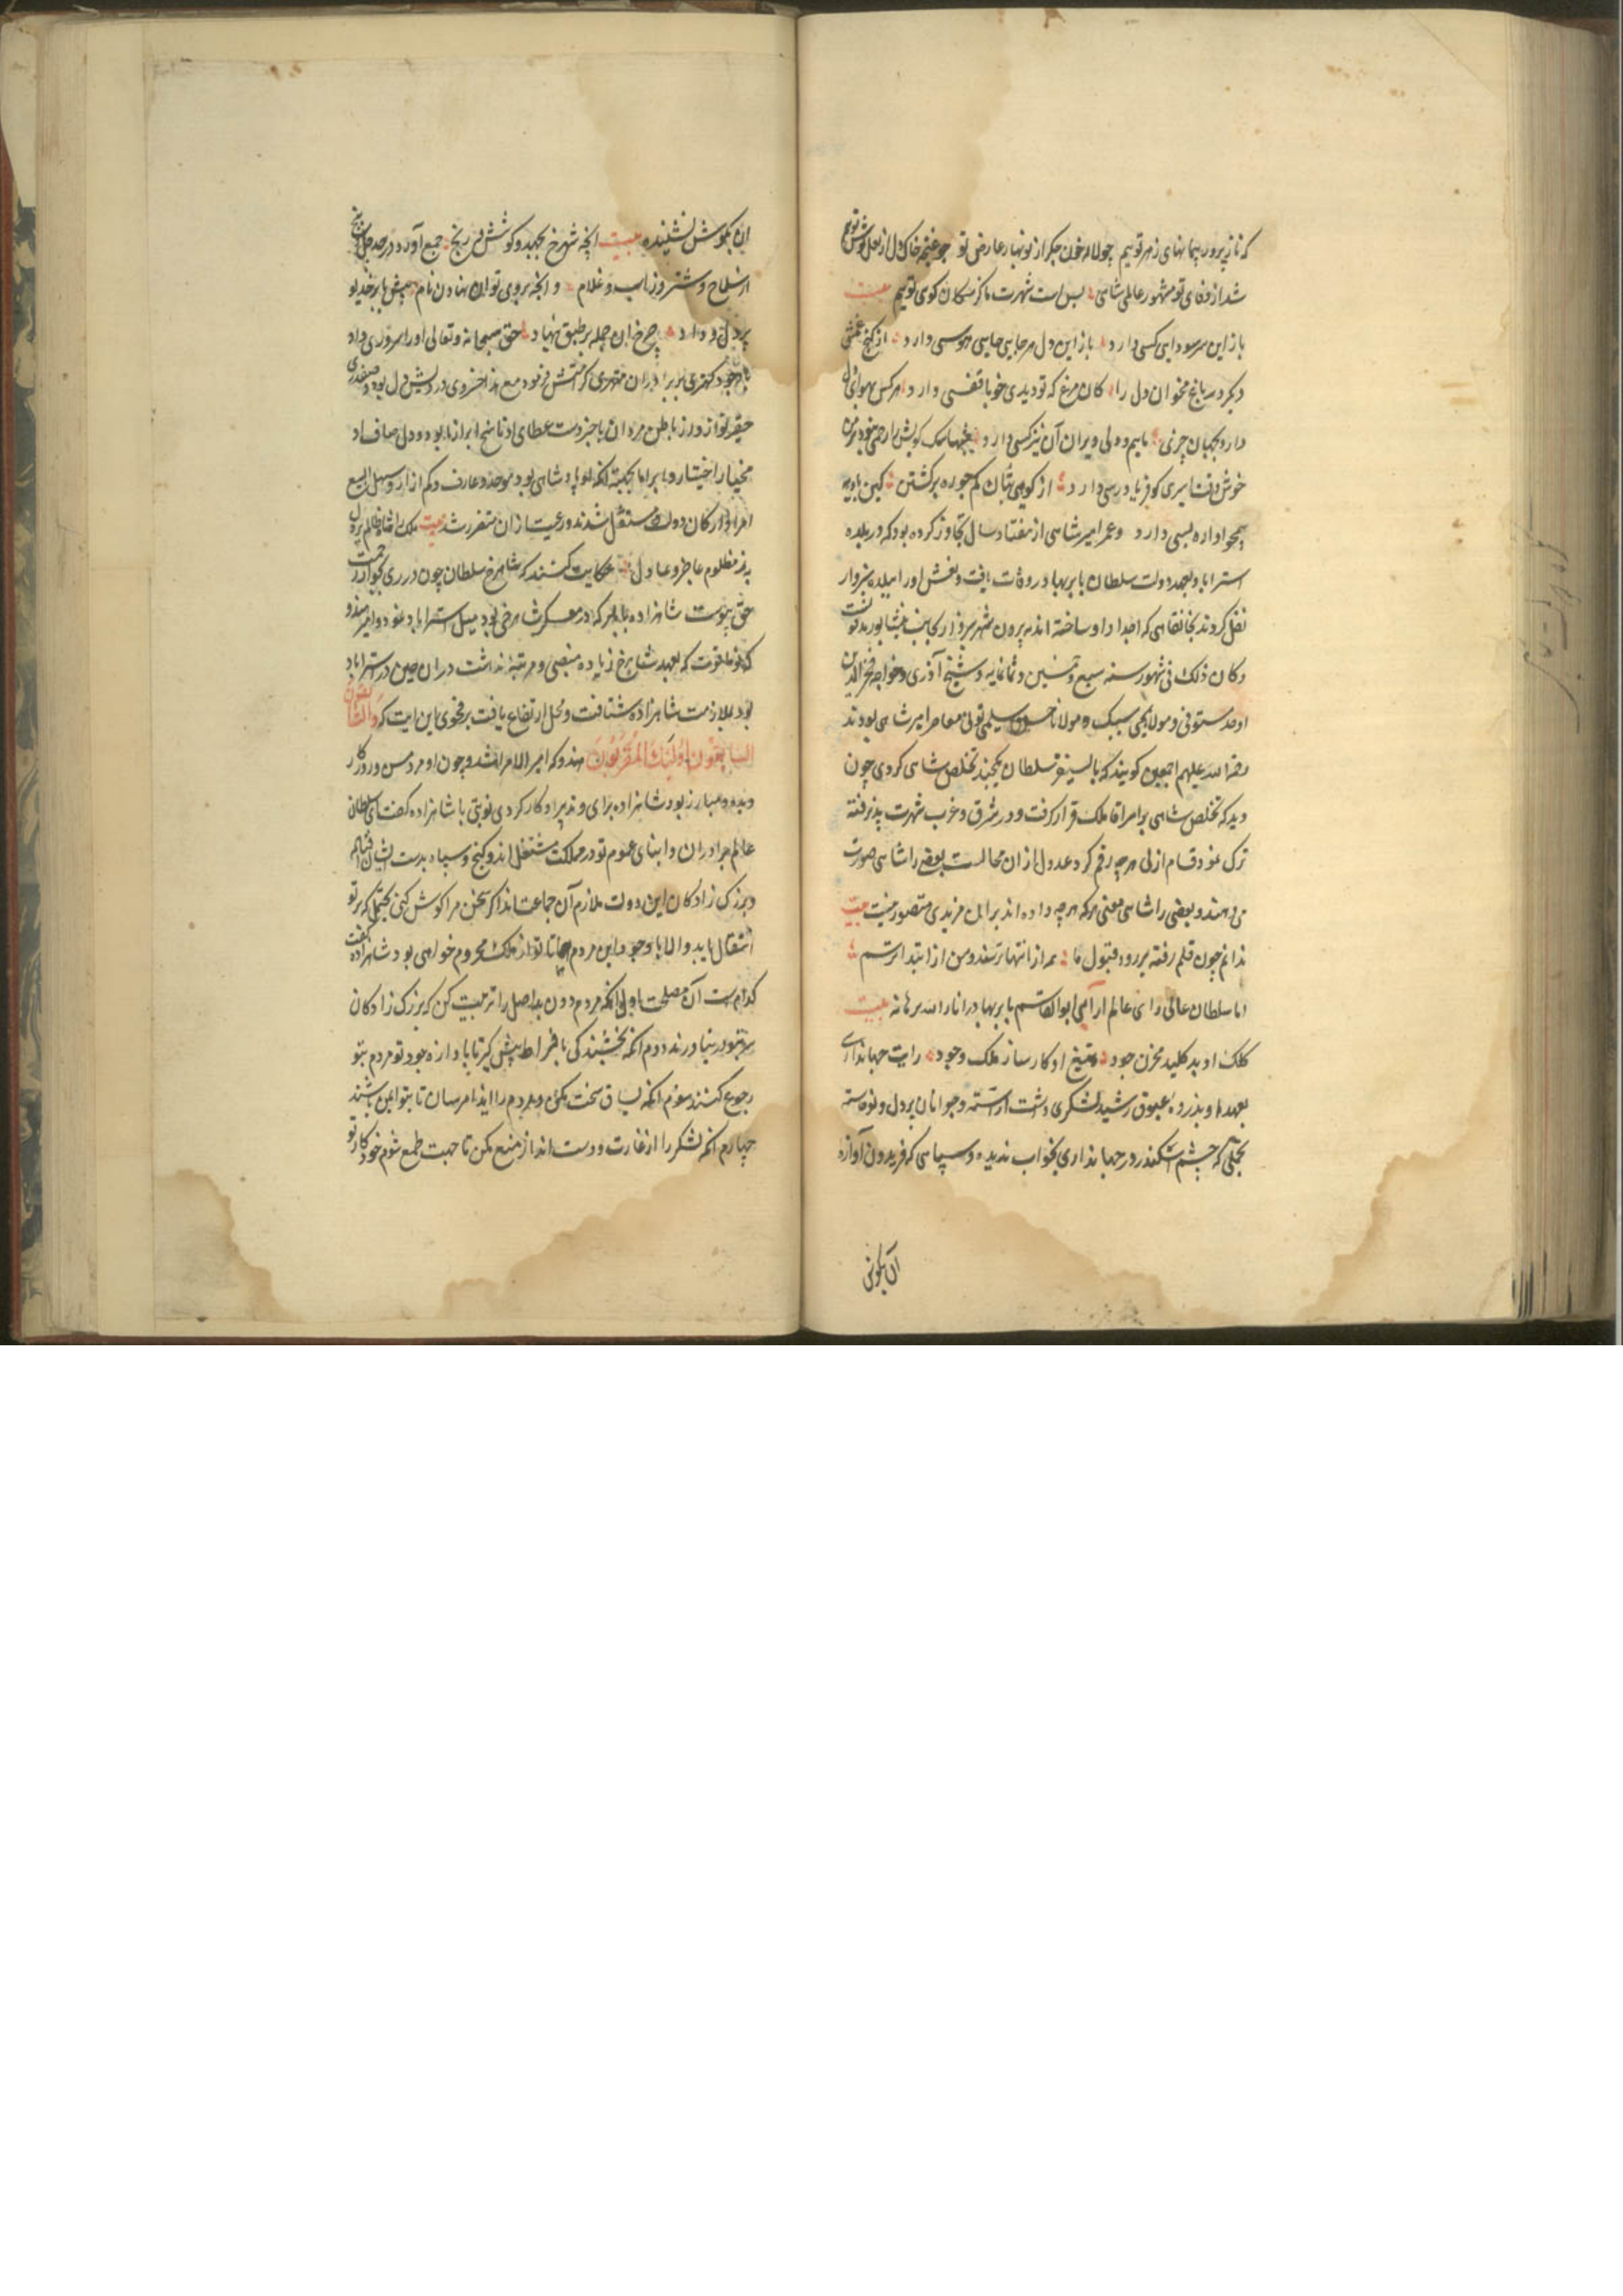 که ناز پرور پیمانهای زهر توییم چو لاله خون جکر از نوبهار عارض تو چو غنچه خاک دل از لعل
شد از وفای تو مشهور عالمی شاهی بس است شهرت ما کز سکان کوی توییم بیت
باز این سر سودایی کسی دارد باز این دل هر جایی جایی هوسی دارد از کنج غمش
دیکر در باغ مخوان دل را کان مرغ که تو دیدی خو با قفسی دارد هر کس بهوای دل
دارد بجهان چیزی ماییم و دلی ویران آن نیز کسی دارد شبها سک کویش را رحمی نبود بر من
خوش وقت اسیری کو فریادرسی دارد از کوی بتان کم جو ره برکشتن کین بادیه
همچو او آواره بسی دارد و عمر امیر شاهی از هفتاد سال تجاوز کرده بود که در بلده
استراباد بعهد دولت سلطان بابر بهادر وفات یافت و نعش او را ببلده سبزوار
نقل کردند بخانقاهی که اجداد او ساخته اند به بیرون شهر سبزوار بجانب نیشابور مدفونست
و کان ذلک فی شهور سنه سبع و خمسین و ثمانمایه و شیخ آذری و خواجه فخر الدین
اوحد مستوفی و مولانا یحیی سیبک و مولانا حسن سلیمی تونی معاصر امیر شاهی بودند
رحمة الله علیهم اجمعین کویند که بایسنغر سلطان یکچند تخلص شاهی کردی چون
دید که تخلص شاهی بر امیر آقا ملک قرار کرفت و در شرق و غرب شهرت پذیرفته
ترک نمود قسام ازلی هر چه رقم کرد عدول از ان محالست بعضی را شاهی صورت
می دهند و بعضی را شاهی معنی هر که هر چه داده اند بر ان مزیدی متصور نیست بیت
ندانم چون قلم رفته بر رد و قبول ما همه از انتها ترسند و من از ابتدا ترسم
اما سلطان عالی رای عالم آرای ابو القاسم بابر بهادر انار الله برهانه بیت
کلک او بد کلید مخزن جود تیغ او کارساز ملک وجود رایت جهانداری
بعهد او بذروه عیوق رشید لشکری داشت آراسته و جوانان پر دل و نوخاسته
بجملی که چشم اسکندر در جهانداری بخواب ندیده و سپاهی که فریدون آوازه
آن بکوش
این بکوش نشنیده بیت آنچه شهرخ بجهد و کوشش و رنج جمع آورد در چهل پنج
از سلاح و شتر و ز اسب و غلام و آنچه بروی توان نهادن نام پیش بابر خدیو
پر دل و داد چرخ ان جمله بر طبق نهاد حق سبحانه و تعالی او را سروری داد
با وجود کهتری بر برادران مهتری کرامتش فرمود مع هذا خسروی درویش دل بود و صفدری
حقیر نواز ورزد باطن مردان با خبر و دست عطای او ناسخ ابر آذار بود و دل صاف او
مخیار اختیار و ابرار اما بجهت آنکه او پادشاهی بود موحد و عارف و کم آزار و سهل البیع
امرا و ارکان دولت مستقل شدند و رعیت از ان متضرر شد بیت ملک را شاه ظالم پر دل
به ز مظلوم عاجز و عادل حکایت کنند که شاهرخ سلطان چون در ری بجوار رحمت
حق پیوست شاهزاده بابر که در معسکر شاهرخی بود میل استراباد نمود و امیر هندو
که نو ما قوت که بعهد شاهرخ زیاده منصبی و مرتبه نداشت در ان حین در استراباد
بود بملازمت شاهزاده شتافت و محل ارتفاع یافت بر فحوی این ایت که والسابقون
السابقون اولئک المقربون هندوکه امیر الامرا شد و چون او مرد مسن و روزکار
دیده و مبارز بود شاهزاده برای و تدبیر او کار کردی نوبتی با شاهزاده کفت ای سلطان
عالم برادران و ابنای عموم تو در مملکت مستقل اند و کنج و سپاه بدست ایشان افتاده
و بزرک زادکان این دولت ملازم آن جماعت اند اکر سخن مرا کوش کنی یحتمل که بر تو
انتقال یابد و الا با وجود این مردم همانا تو از ملک محروم خواهی بود شاهزاده کفت
کدام است آن مصلحت اول آنکه مردم دون بد اصل را تربیت کن که بزرک زادکان
سر بتو در نیاورند دوم آنکه بخشندکی بافراط پیش کیر تا باوازه جود تو مردم بتو
رجوع کنند سوم آنکه یساق سخت مکن و مردم را ایذا مرسان تا بتو ایمن باشند
چهارم آنکه لشکر را از غارت و دست انداز منع مکن تا جهت طمع شوم خود کار تو